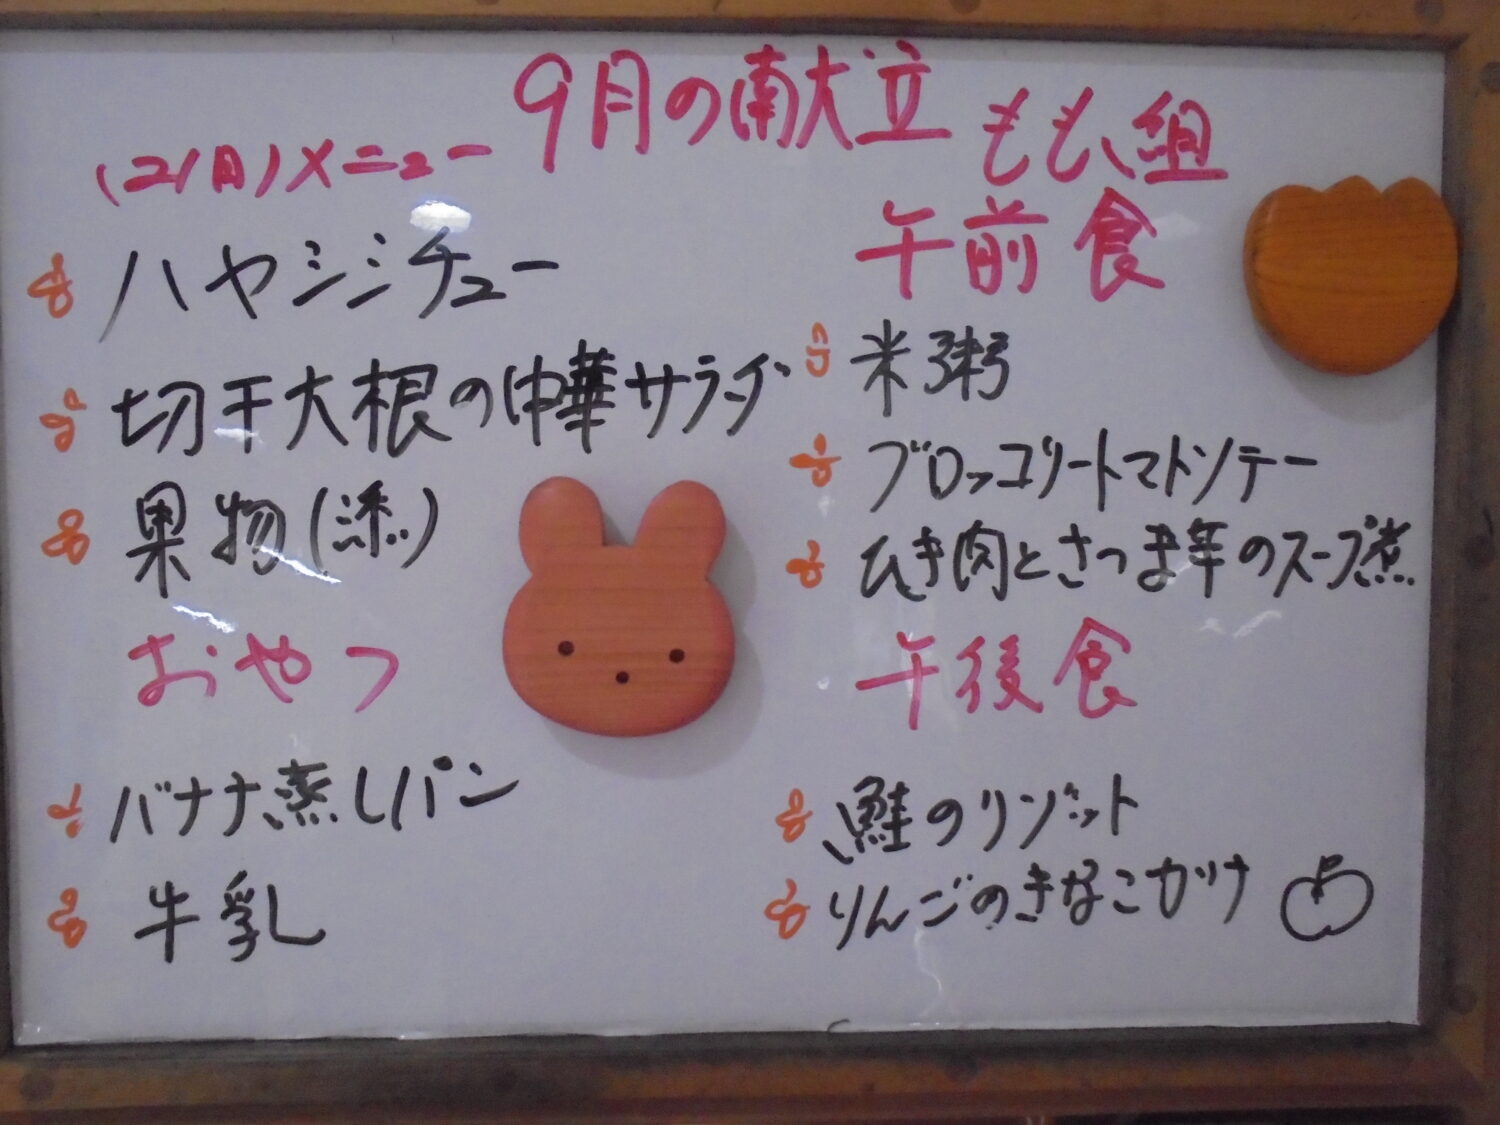 9月の献立
(21日)メニュー
ハヤシシチュー
切干大根の中華サラダ
果物(添)
おやつ
バナナ蒸しパン
牛乳
もも組
午前食
米粥
ブロッコリートマトソテー
ひき肉とさつま芋のスープ煮
午後食
鮭のリゾット
りんごのきなこがけ